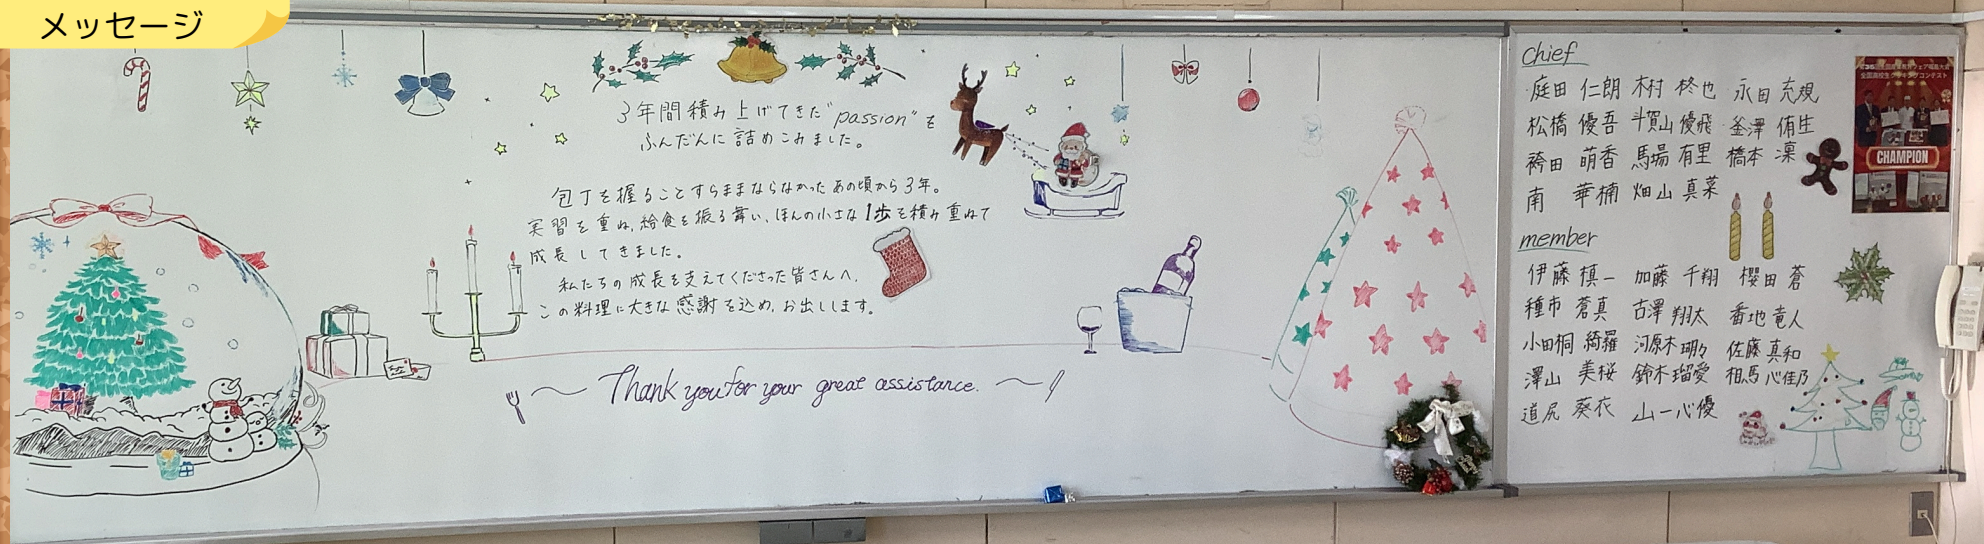 メッセージ
3年間積み上げてきた"passion"を
ふんだんに詰めこみました。
包丁を握ることすらままならなかったあの頃から3年。
実習を重ね、給食を振る舞い、ほんの小さな1歩を積み重ねて
成長してきました。
私たちの成長を支えてくださった皆さんへ、
この料理に大きな感謝を込め、お出しします。
Thank you for your great assistance.
Chief
庭田 仁朗 木村 柊也 永田 充規
松橋 優吾 斗賀山 優飛 釜澤 侑生
袴田 萌香 馬場 有里 橋本 凜
南 華楠 畑山 真菜
member
伊藤 槙一 加藤 千翔 櫻田 蒼
種市 蒼真 古澤 翔太 番地 竜人
小田桐 綺羅 河原木 瑚々 佐藤 真和
澤山 美桜 鈴木 瑠愛 相馬 心佳乃
道尻 葵衣 山一 心優
全国高校生クッキングコンテスト
CHAMPION